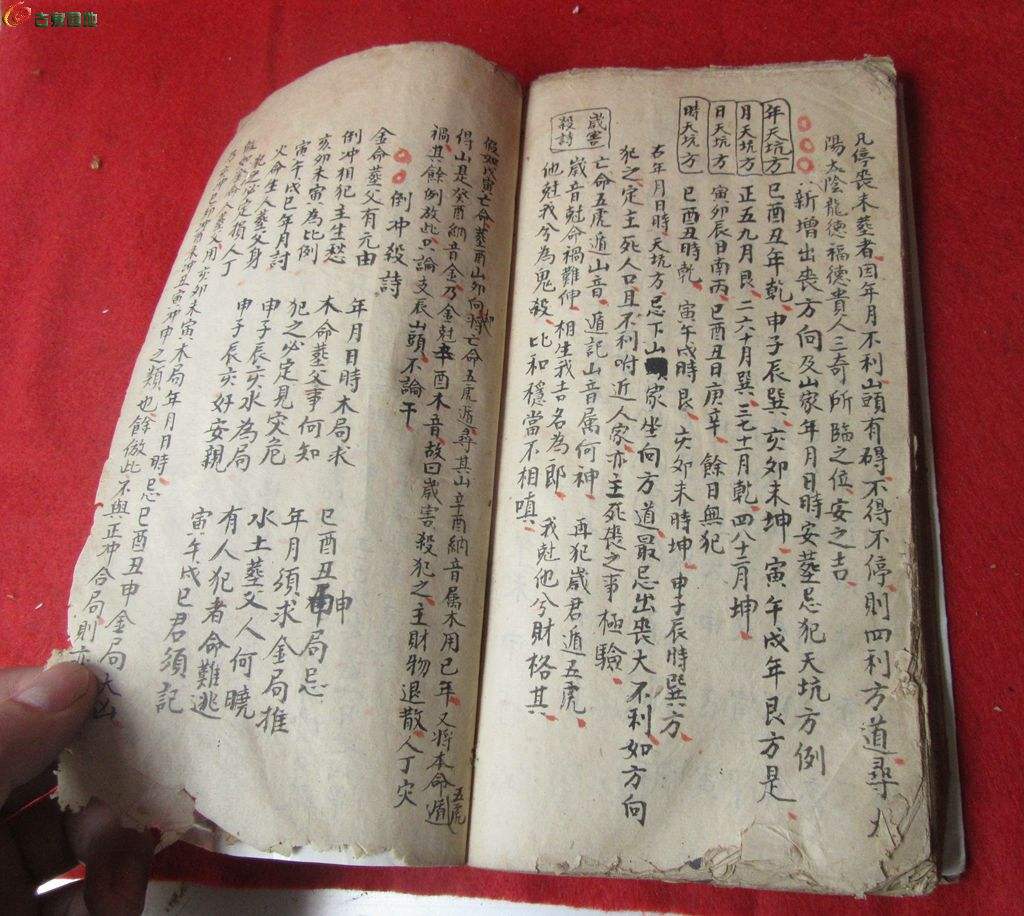 古泉园地
凡停喪未葬者因年月不利山頭有碍不得不停則四利方道尋
陽太陰龍德福德貴人三奇所臨之位安之吉
新增出喪方向及山家年月日時安葬忌犯天坑方例
年天坑方 巳酉丑年乾 申子辰巽 亥卯未坤 寅午戌年艮方是
月天坑方 正五九月艮 二六十月巽 三七十一月乾 四八十二月坤
日天坑方 寅卯辰日南丙 巳酉丑日庚辛 餘日無犯
時天坑方 巳酉丑時乾 寅午戌時艮 亥卯未時坤 申子辰時巽方
右年月日時天坑方忌下山家坐向方道最忌出喪大不利如方向
犯之定主死人口且不利附近人家亦主死喪之事極驗
歲害殺詩
亡命五虎遁山音 遁記山音属何神 再犯歲君遁五虎
歲音尅命禍難伸 相生我吉名為郎 我尅他兮財格其
他尅我兮為鬼殺 比和穩當不相嗔
假如戊寅亡命葬酉山卯向將亡命五虎遁尋其山辛酉納音属木用巳年又將本命遁五虎
得山是癸酉納音金乃金尅辛酉木音故曰歲害殺犯之主財物退散人丁灾
禍其餘例放此只論支辰山頭不論干
倒冲殺詩
金命葬父有元由 年月日時木局求
倒冲相犯主生愁 木命葬父事何知 巳酉丑申局忌
亥卯未寅為比例 犯之必定見灾危 年月須求金局推
寅午戌巳年月討 申子辰亥水為局 水土葬父人何曉
火命生人葬父身 申子辰亥好安親 有人犯者命難逃
犯之必定損人丁 寅午戌巳君須記
亥卯未寅木局年月日時忌巳酉丑申金局大凶
冲申之類也餘倣此不與正冲合局則亦